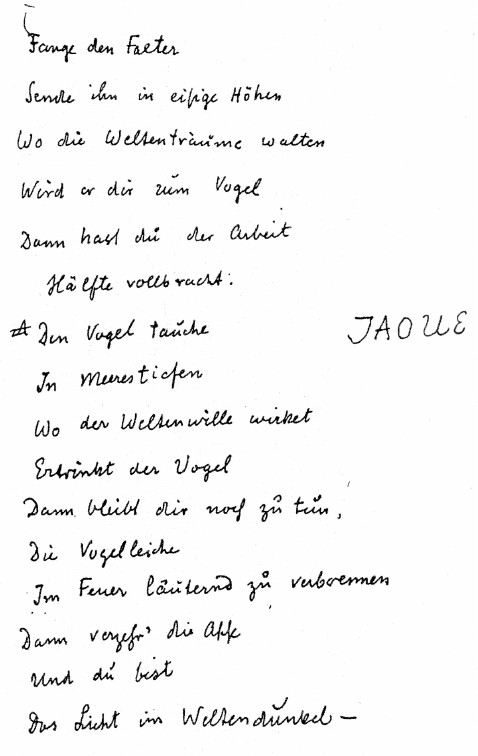 Fange den Falter
Sende ihn in eisige Höhen
Wo die Weltenträume walten
Wird er dir zum Vogel
Dann hast du der Arbeit
Hälfte vollbracht.
Den Vogel tauche
JAOUE
In Meerestiefen
Wo der Weltenwille wirket
Ertrinkt der Vogel
Dann bleibt dir noch zu tun,
Die Vogelleiche
Im Feuer läuternd zu verbrennen
Dann verzehr' die Asche
Und du bist
Das Licht im Weltendunkel —